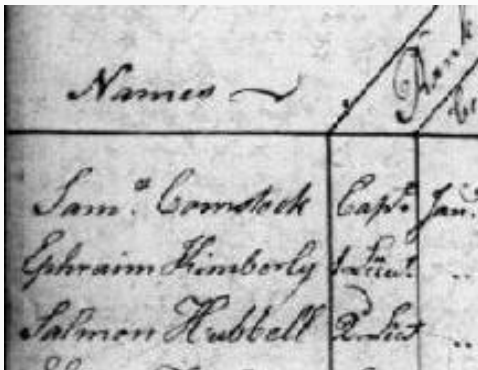 Names Rank
Sam.ˡ Comstock Capt. Jan.
Ephraim Kimberly 1 Lieut "
Salmon Hubbell 2 Lieut "